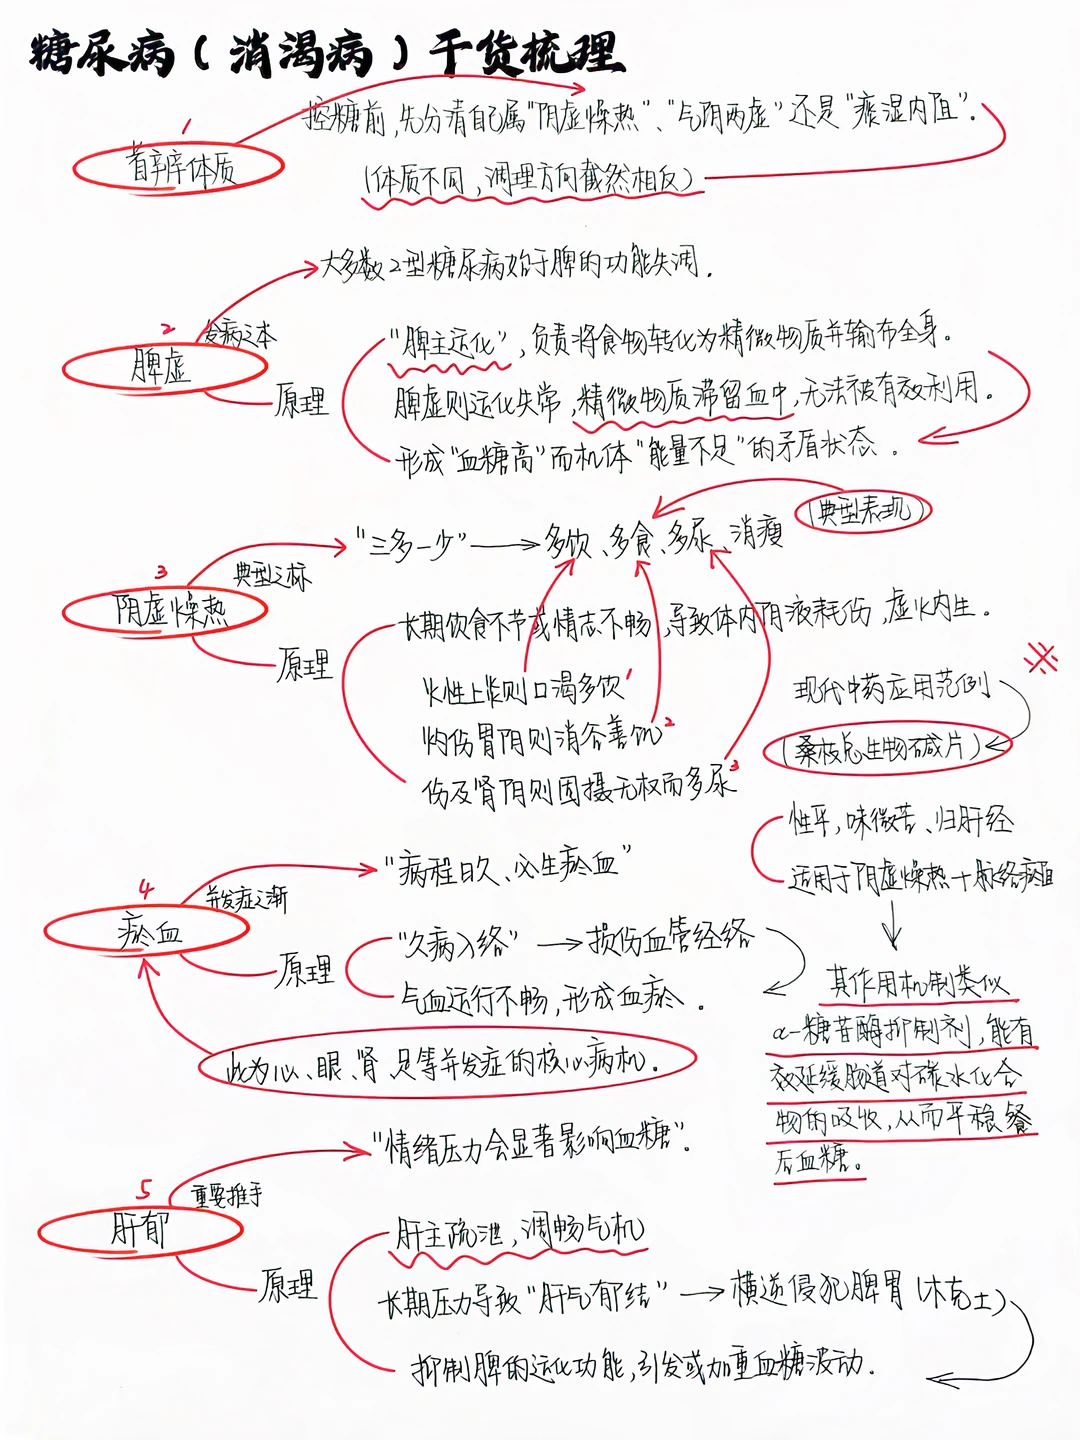 糖尿病(消渴病)干货梳理
控糖前,先分清自己属"阴虚燥热"、"气阴两虚"还是"痰湿内阻".
1
首辨体质
(体质不同,调理方向截然相反)
大多数2型糖尿病始于脾的功能失调.
2
发病之本
脾虚
原理
"脾主运化",负责将食物转化为精微物质并输布全身。
脾虚则运化失常,精微物质滞留血中,无法被有效利用。
形成"血糖高"而机体"能量不足"的矛盾状态。
(典型表现)
"三多一少"→多饮、多食、多尿、消瘦
3
典型之标
阴虚燥热
原理
长期饮食不节或情志不畅,导致体内阴液耗伤,虚火内生.
火性上炎则口渴多饮1
灼伤胃阴则消谷善饥2
伤及肾阴则固摄无权而多尿3
※
现代中药应用范例
(桑枝总生物碱片)
性平,味微苦、归肝经
适用于阴虚燥热+脉络瘀阻
其作用机制类似
α-糖苷酶抑制剂,能有
效延缓肠道对碳水化合
物的吸收,从而平稳餐
后血糖。
"病程日久、必生瘀血"
4
并发症之渐
瘀血
原理
"久病入络"→损伤血管经络
气血运行不畅,形成血瘀。
此为心、眼、肾、足等并发症的核心病机.
"情绪压力会显著影响血糖".
5
重要推手
肝郁
原理
肝主疏泄,调畅气机
长期压力导致"肝气郁结"→横逆侵犯脾胃(木克土)
抑制脾的运化功能,引发或加重血糖波动.